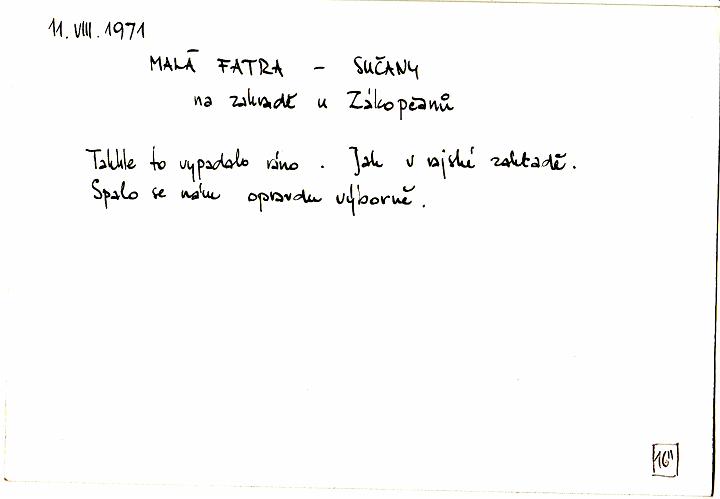 11. VIII. 1971
MALÁ FATRA - SUČANY
na zahradě u Zákopčanů
Takhle to vypadalo ráno. Jak v rajské zahradě.
Spalo se nám opravdu výborně.
16"